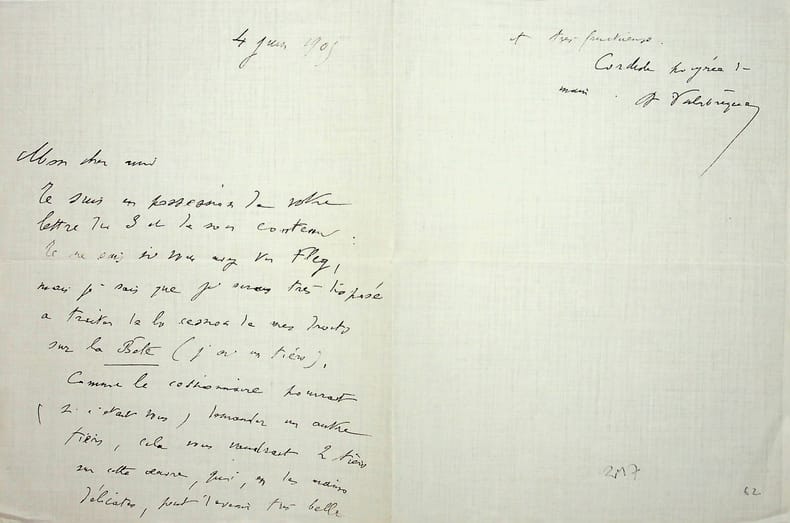 4 juin 1905
Mon cher ami
Je suis en possession de votre
lettre du 3 et de son contenu.
Je ne sais si vous avez vu Fleg,
mais je sais que je serais très disposé
à traiter de la cession de mes droits
sur la Bête (j'ai un tiers).
Comme le cessionnaire pourrait
(si c'était vous) demander un autre
tiers, cela vous vaudrait 2 tiers
sur cette œuvre, qui, en des mains
délicates, peut devenir très belle
et très fructueuse.
Cordiale poignée de
main